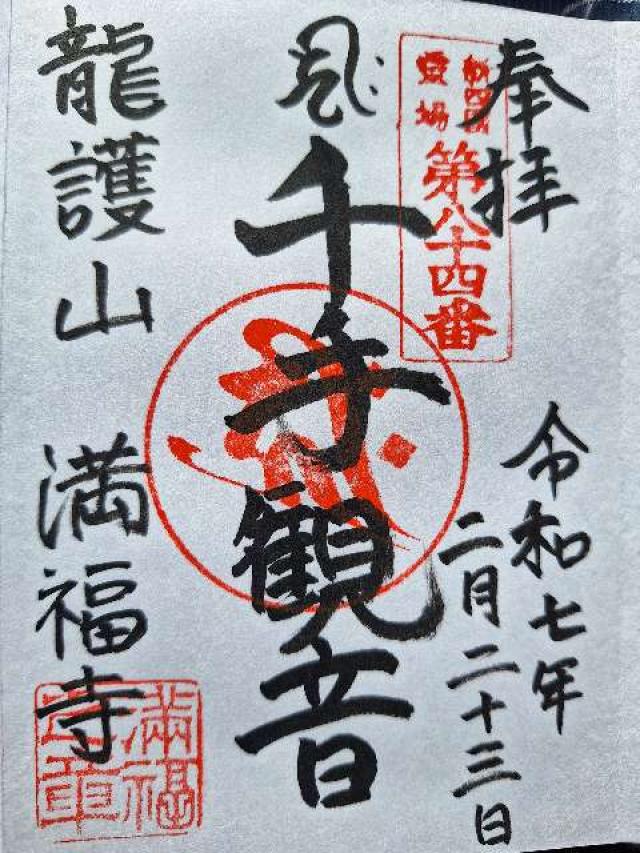 奉拝
第八十四番
霊場
千手観音
令和七年
二月二十三日
龍護山 満福寺